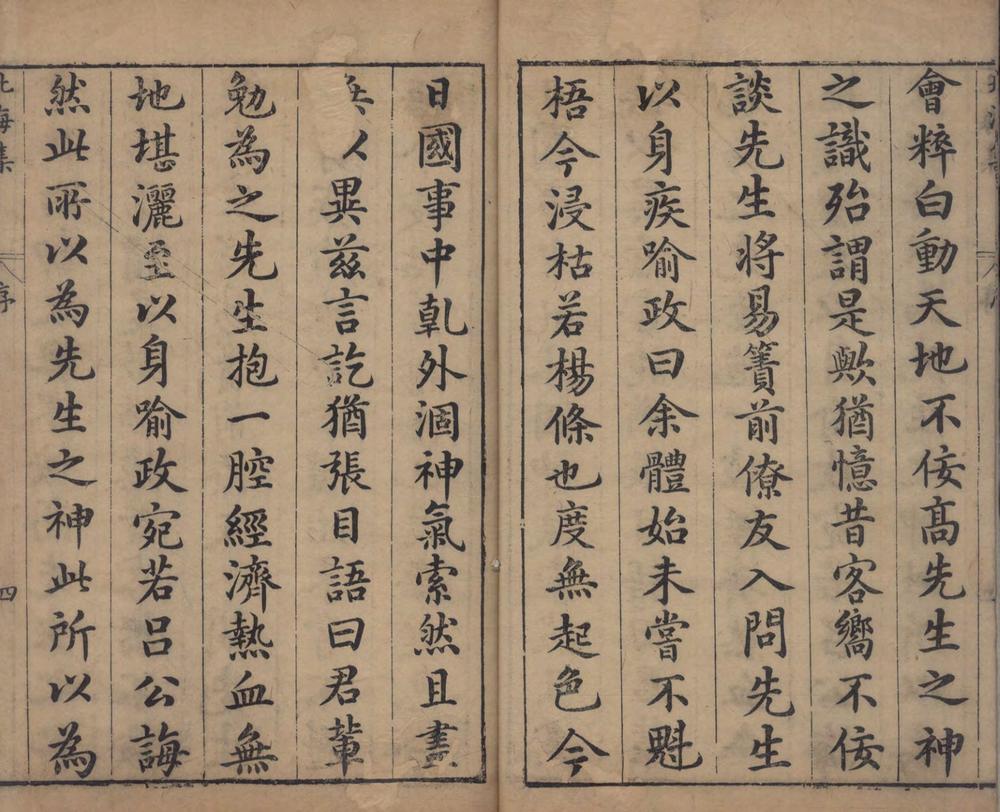 會粹白動天地不佞高先生之神
之識殆謂是歟猶憶昔客嚮不佞
談先生將易簀前僚友入問先生
以身疾喻政曰余體始未嘗不魁
梧今浸枯若楊條也度無起色今
日國事中乹外涸神氣索然且晝
人異兹言訖猶張目語曰君輩
勉為之先生抱一腔經濟熱血無
地堪灑至以身喻政宛若呂公誨
然此所以為先生之神此所以為
北海集
序
四